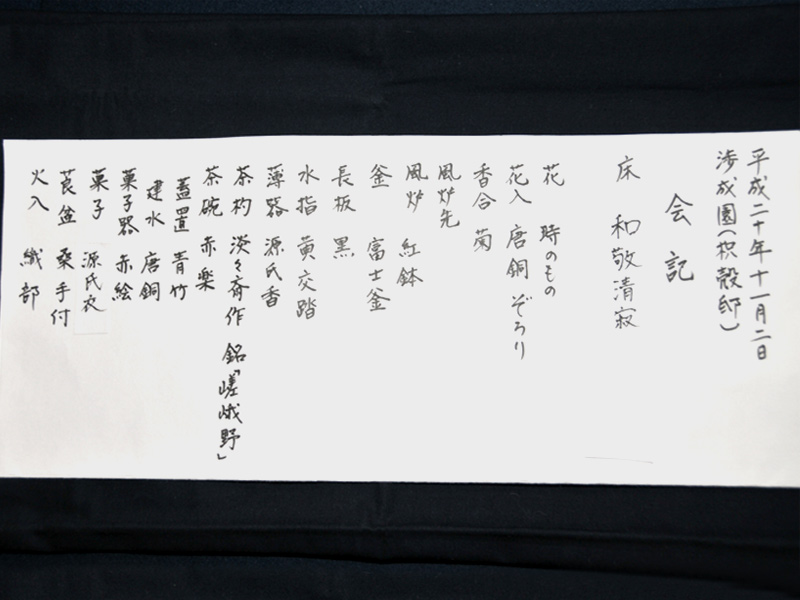 平成二十年十一月二日
渉成園(枳殻邸)
会記
床 和敬清寂
花 時のもの
花入 唐銅 ぞろり
香合 菊
風炉先
風炉 紅鉢
釜 富士釜
長板 黒
水指 黄交趾
薄器 源氏香
茶杓 淡々斎作 銘「嵯峨野」
茶碗 赤楽
蓋置 青竹
建水 唐銅
菓子器 赤絵
菓子 源氏衣
莨盆 桑手付
火入 織部